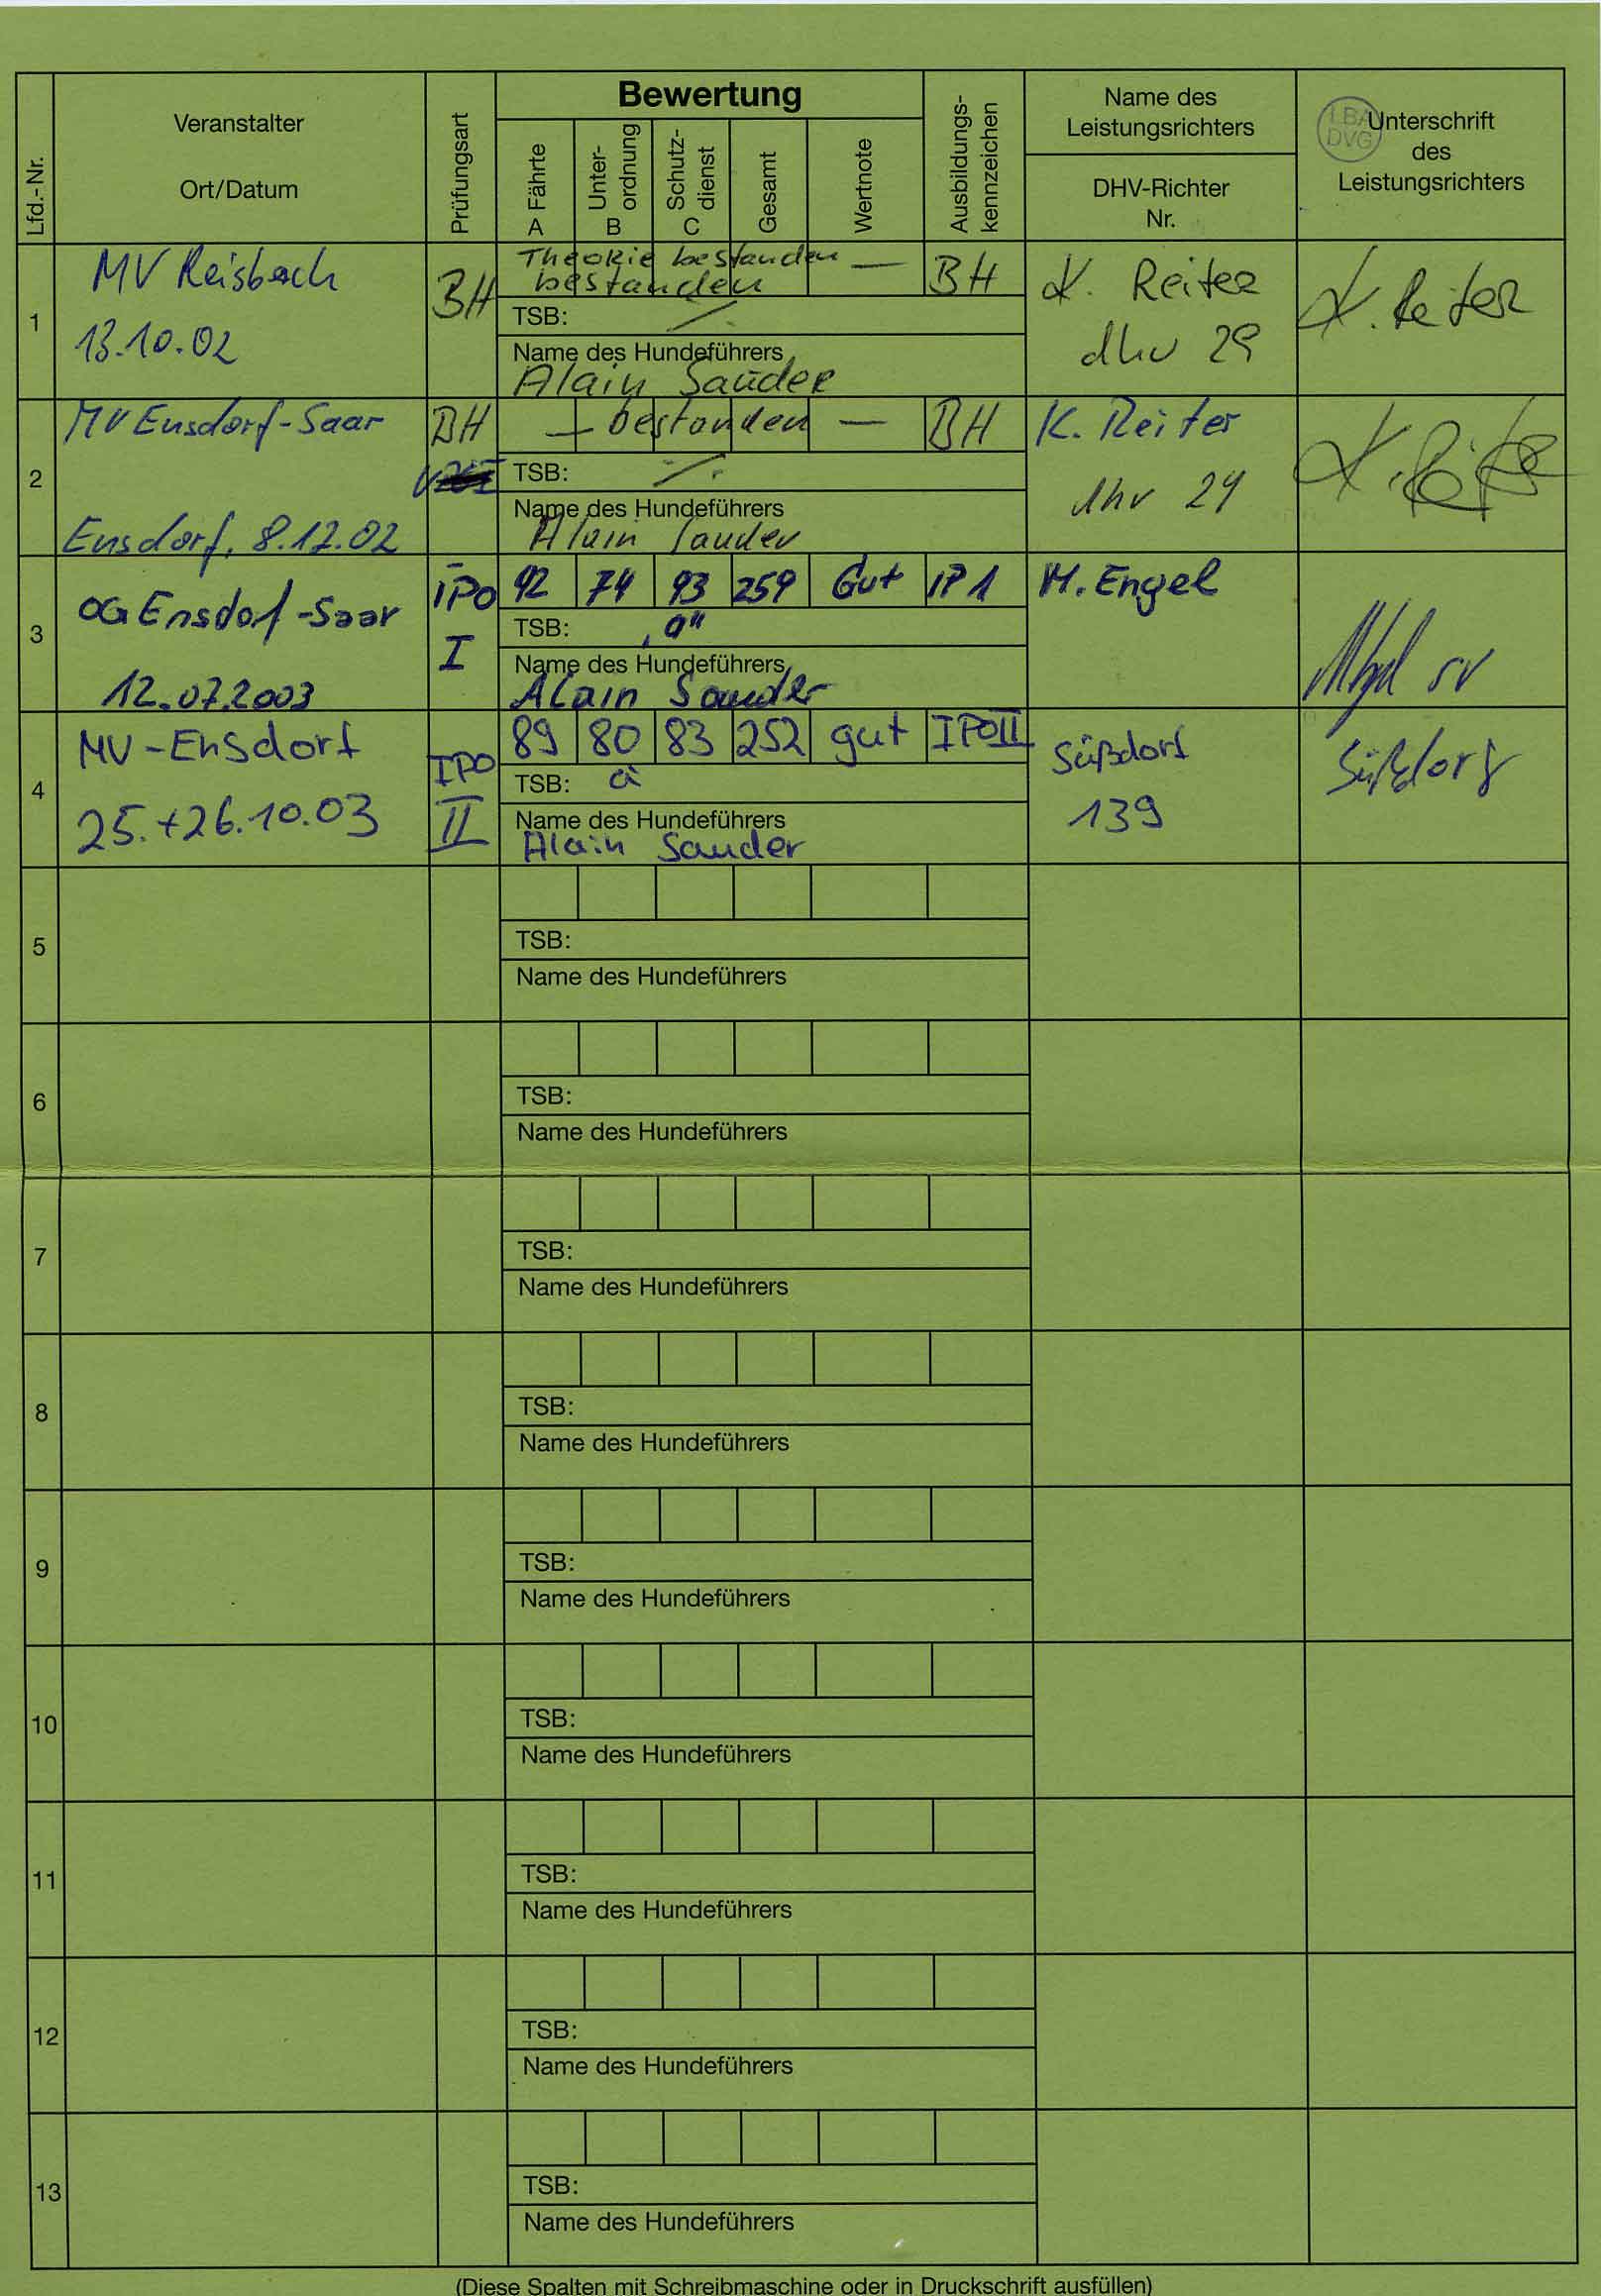 Lfd.-Nr.
Veranstalter
Ort/Datum
Prüfungsart
Bewertung
A Fährte
Unter-
ordnung
B
Schutz-
dienst
C
Gesamt
Wertnote
Ausbildungs-
kennzeichen
Name des
Leistungsrichters
DHV-Richter
Nr.
LBA
DVG
Unterschrift
des
Leistungsrichters
1
MV Reisbach
13.10.02
BH
Theorie bestanden —
bestanden
TSB: ·/.
Name des Hundeführers
Alain Sauder
BH
K. Reiter
dhv 29
K. Reiter
2
MV Ensdorf-Saar
Ensdorf, 8.12.02
BH
— bestanden —
TSB: ·/.
Name des Hundeführers
Alain Sauder
BH
K. Reiter
dhv 29
K. Reiter
3
OG Ensdorf-Saar
12.07.2003
IPO
I
92 74 93 259 Gut IP1
TSB: „a"
Name des Hundeführers
Alain Sauder
M. Engel
SV
4
MV-Ensdorf
25.+26.10.03
IPO
II
89 80 83 252 gut IPOII
TSB: a
Name des Hundeführers
Alain Sauder
Süßdorf
139
Süßdorf
5
TSB:
Name des Hundeführers
6
TSB:
Name des Hundeführers
7
TSB:
Name des Hundeführers
8
TSB:
Name des Hundeführers
9
TSB:
Name des Hundeführers
10
TSB:
Name des Hundeführers
11
TSB:
Name des Hundeführers
12
TSB:
Name des Hundeführers
13
TSB:
Name des Hundeführers
(Diese Spalten mit Schreibmaschine oder in Druckschrift ausfüllen)